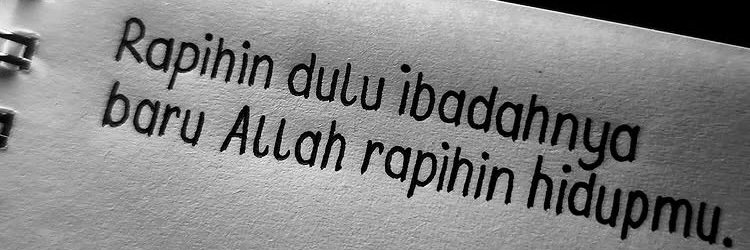 Rapihin dulu ibadahnya
baru Allah rapihin hidupmu.